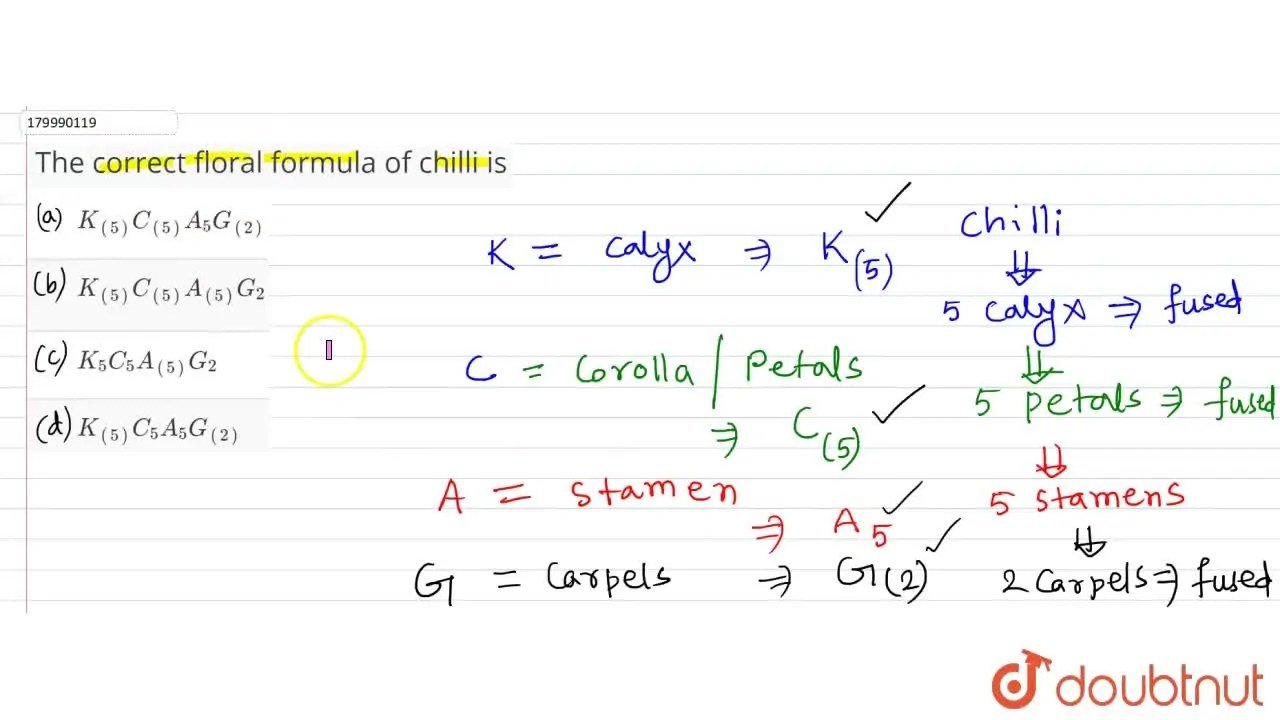 179990119
The correct floral formula of chilli is
(a) K(5)C(5)A5G(2)
(b) K(5)C(5)A(5)G2
(c) K5C5A(5)G2
(d) K(5)C5A5G(2)
K = Calyx ⇒ K(5) ✓
C = Corolla | Petals
⇒ C(5) ✓
A = Stamen
⇒ A5 ✓
G = Carpels ⇒ G(2) ✓
Chilli
⇓
5 Calyx ⇒ fused
⇓
5 Petals ⇒ fused
⇓
5 Stamens
⇓
2 Carpels ⇒ fused
doubtnut